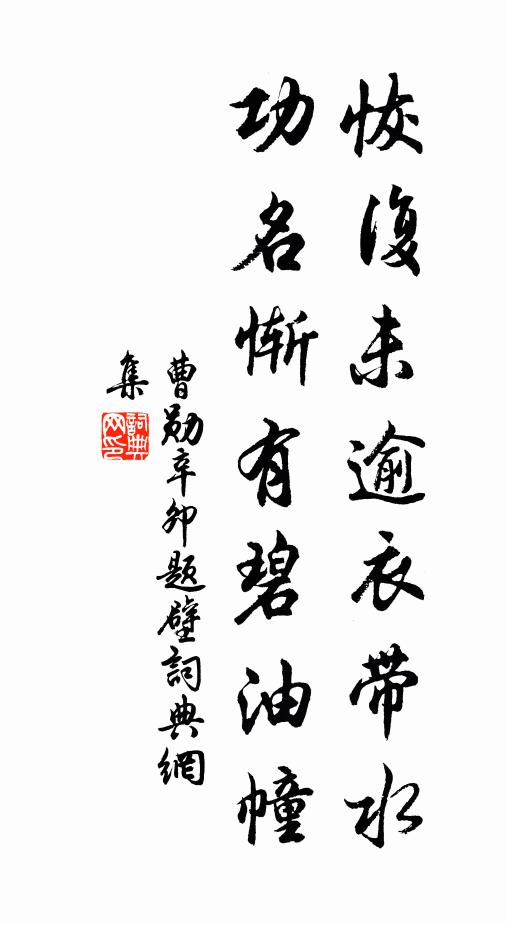 恢復未逾衣带水
功名惭有碧油幢
曹勋辛卯题壁詞典網
集
詞典网印